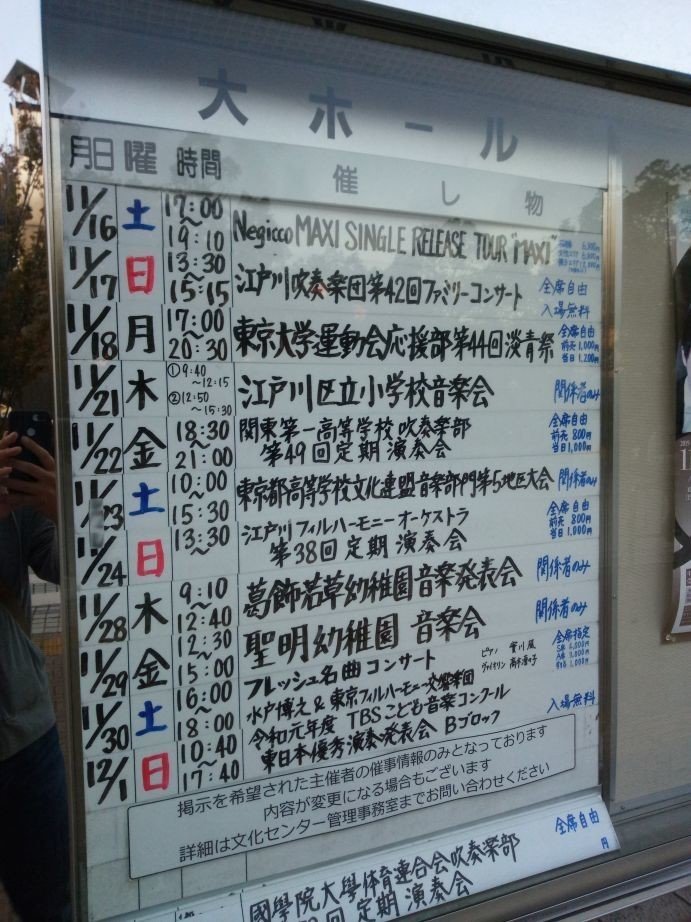 大ホール
月日 曜 時間 催し物
11/16 土 17:00〜19:10 Negicco MAXI SINGLE RELEASE TOUR "MAXI"
11/17 日 13:30〜15:15 江戸川吹奏楽団第42回ファミリーコンサート 全席自由 入場無料
11/18 月 17:00〜20:30 東京大学運動会応援部第44回淡青祭 全席自由 前売1,000円 当日1,200円
11/21 木 ①9:40〜12:15 ②12:50〜15:30 江戸川区立小学校音楽会 関係者のみ
11/22 金 18:30〜21:00 関東第一高等学校吹奏楽部
第49回定期演奏会 全席自由 前売800円 当日1,000円
11/23 土 10:00〜15:30 東京都高等学校文化連盟音楽部門第5地区大会 関係者のみ
11/24 日 13:30〜 江戸川フィルハーモニーオーケストラ
第38回定期演奏会 全席自由 前売800円 当日1,000円
11/28 木 9:10〜12:40 葛飾若草幼稚園音楽発表会 関係者のみ
11/29 金 12:30〜15:00 聖明幼稚園 音楽会 関係者のみ
11/30 土 16:00〜18:00 フレッシュ名曲コンサート
水戸博之&東京フィルハーモニー交響楽団 ピアノ ヴァイオリン 全席指定
12/1 日 10:40〜17:40 令和元年度 TBSこども音楽コンクール
東日本優秀演奏発表会 Bブロック 入場無料
掲示を希望された主催者の催事情報のみとなっております
内容が変更になる場合もございます
詳細は文化センター管理事務室までお問い合わせください
國學院大學体育連合会吹奏楽部 全席自由
回 定期演奏会 円